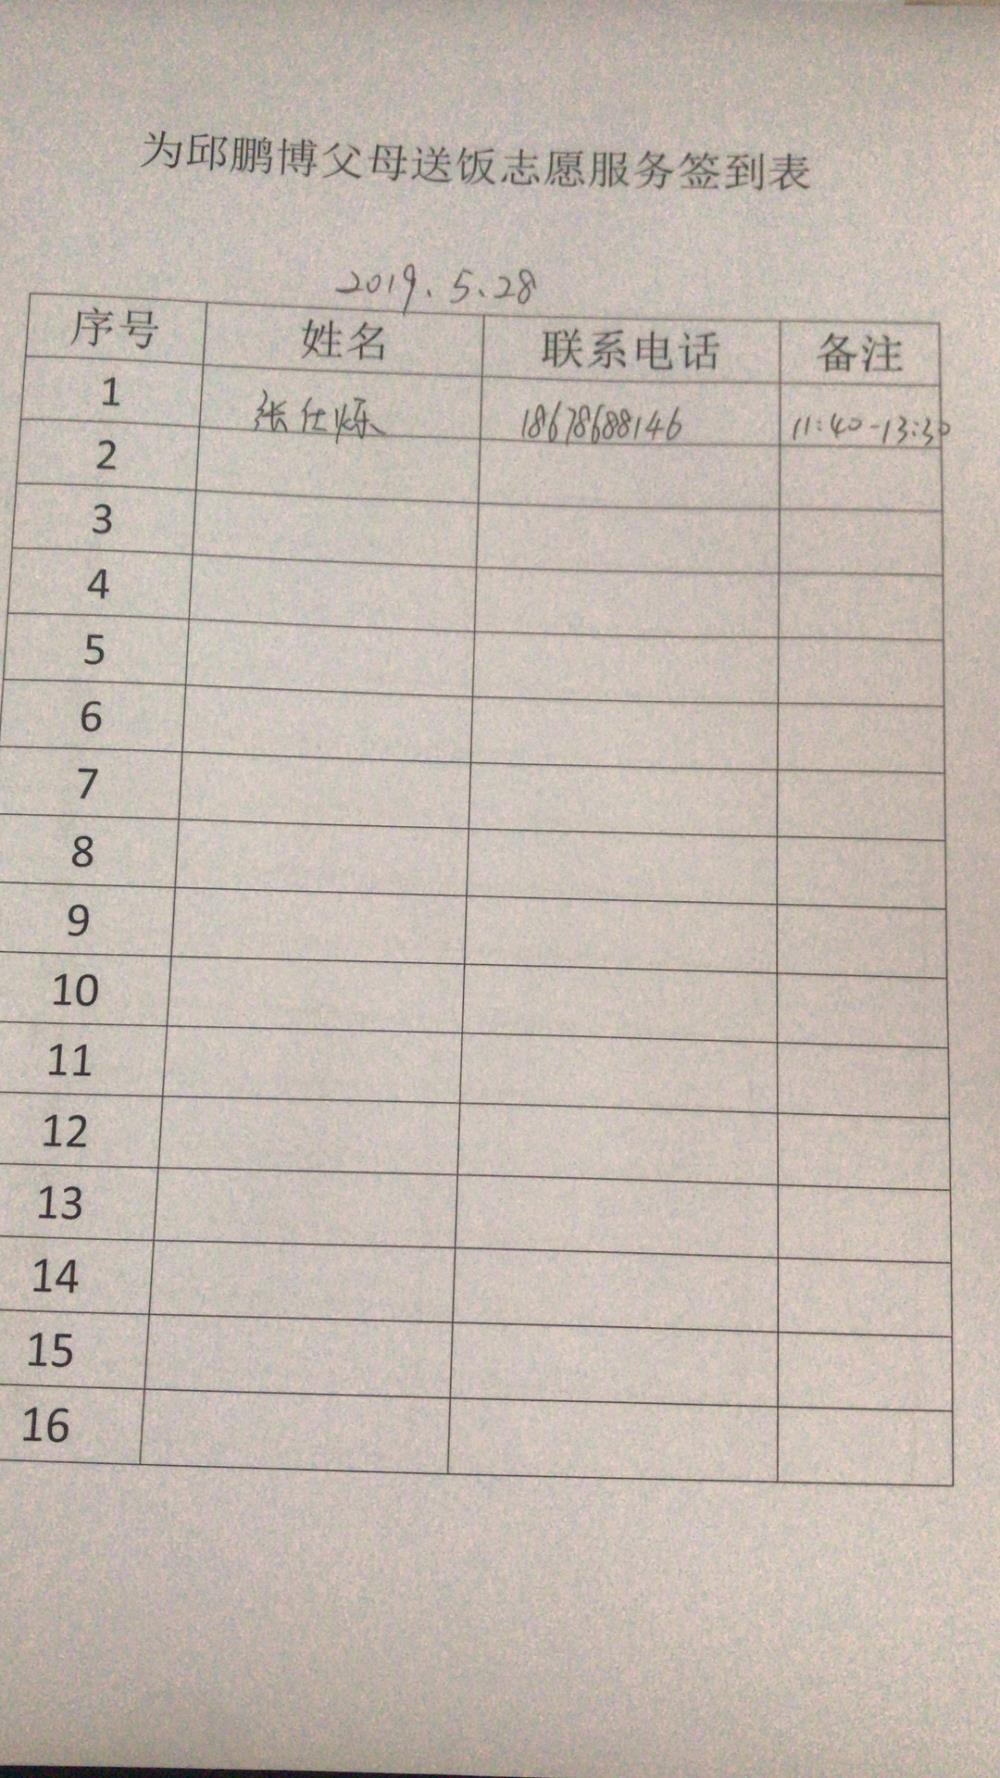 为邱鹏博父母送饭志愿服务签到表
2019.5.28
序号 姓名 联系电话 备注
1 张仕烁 18678688146 11:40-13:30
2
3
4
5
6
7
8
9
10
11
12
13
14
15
16